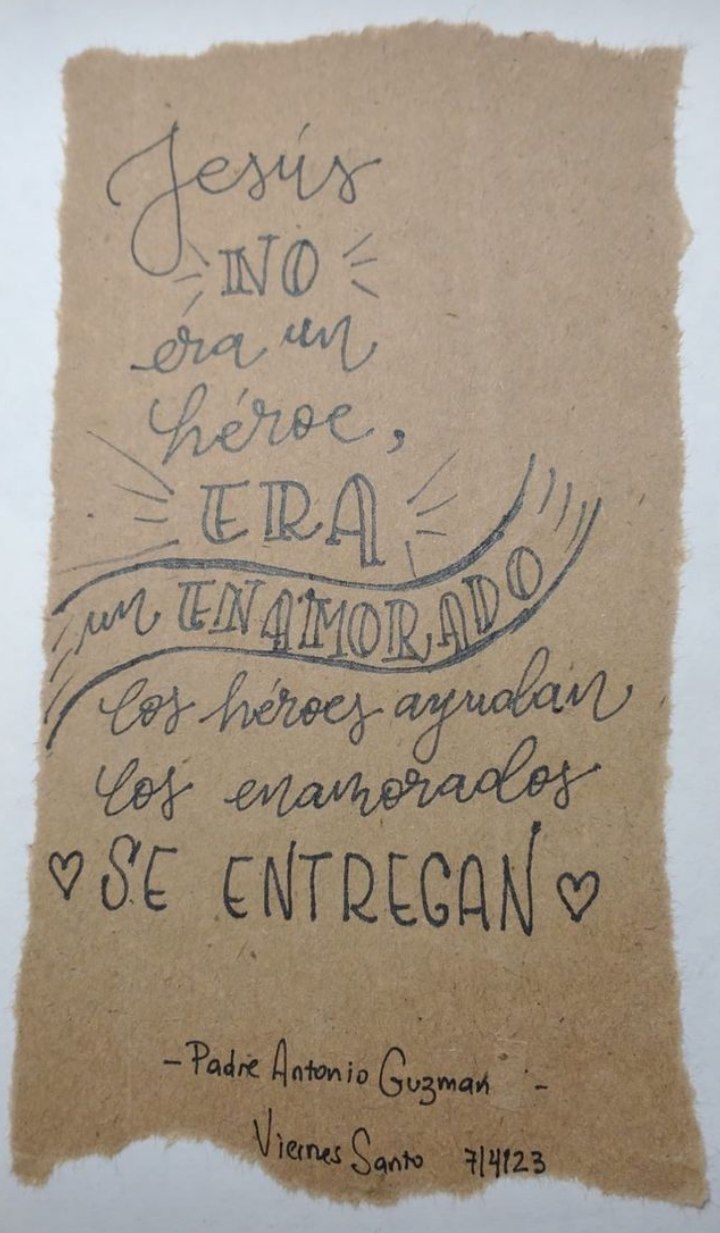 Jesús
NO
éra un
héroe,
ERA
un ENAMORADO
los héroes ayudán
los enamorados
♡ SE ENTREGAN ♡
- Padre Antonio Guzman -
Viernes Santo 7/4/23